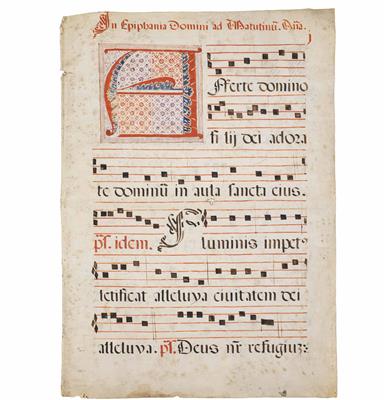 In Epiphania Domini ad Matutinū. Añа.
Afferte domino
filij dei adora
te dominū in aula sancta eius.
ps. idem. Fluminis impet⁹
letificat alleluya ciuitatem dei
alleluya. ps. Deus nr̄ refugiuz: